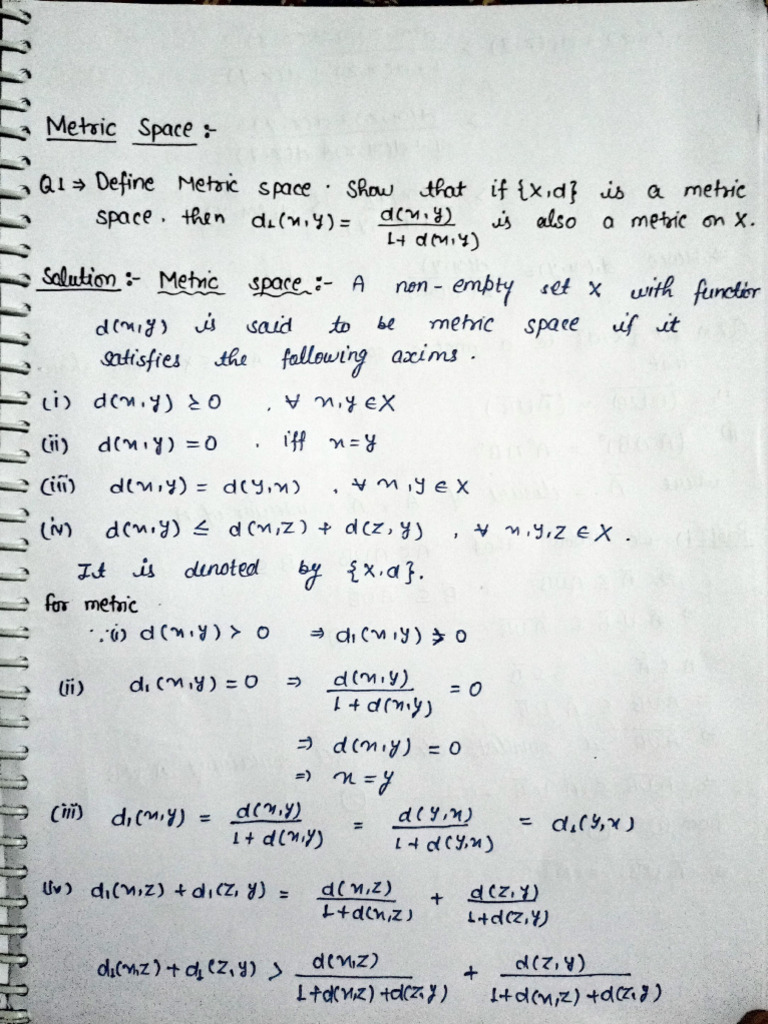 Metric Space :-
Q1 ⇒ Define Metric space. Show that if {X,d} is a metric
space. then d₁(x,y) = d(x,y) / 1+ d(x,y) is also a metric on X.
Solution :- Metric space :- A non-empty set X with function
d(x,y) is said to be metric space if it
satisfies the following axims.
(i) d(x,y) ≥ 0 , ∀ x,y ∈ X
(ii) d(x,y) = 0 . iff x=y
(iii) d(x,y) = d(y,x) , ∀ x,y ∈ X
(iv) d(x,y) ≤ d(x,z) + d(z,y) , ∀ x,y,z ∈ X.
It is denoted by {X,d}.
for metric
∵ (i) d(x,y) > 0 ⇒ d₁(x,y) ≥ 0
(ii) d₁(x,y) = 0 ⇒ d(x,y) / 1+ d(x,y) = 0
⇒ d(x,y) = 0
⇒ x = y
(iii) d₁(x,y) = d(x,y) / 1+ d(x,y) = d(y,x) / 1+ d(y,x) = d₁(y,x)
(iv) d₁(x,z) + d₁(z,y) = d(x,z) / 1+d(x,z) + d(z,y) / 1+d(z,y)
d₁(x,z) + d₁(z,y) > d(x,z) / 1+d(x,z)+d(z,y) + d(z,y) / 1+d(x,z)+d(z,y)